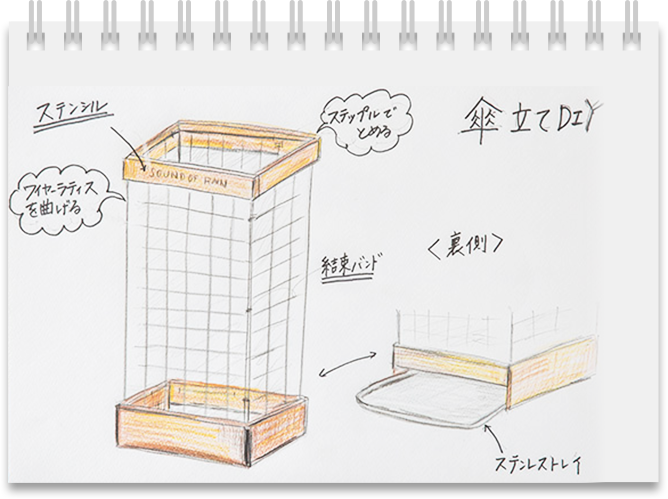 傘立てDIY
ステンシル
ステップルで
とめる
SOUND OF RAIN
ワイヤーラティス
を曲げる
結束バンド
<裏側>
ステンレストレイ